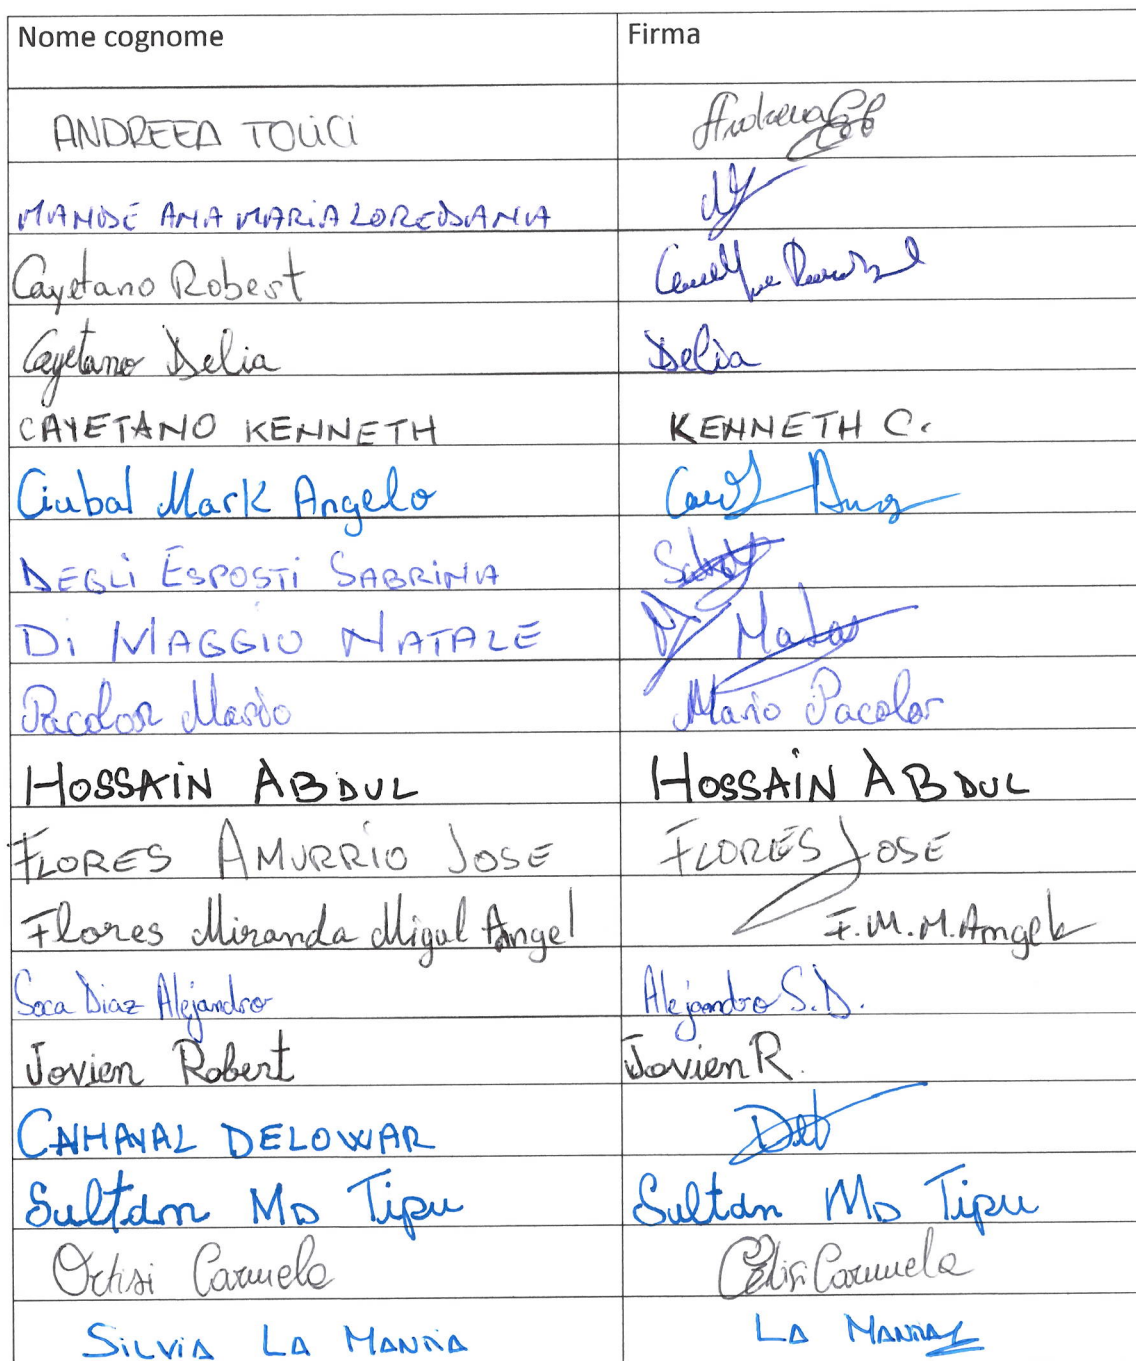 Nome cognome Firma
ANDREEA TOUCI Andreea
ANA MARIA LOREDANA
Cayetano Robert
Cayetano Delia Delia
CAYETANO KENNETH KENNETH C.
Ciubal Mark Angelo
DEGLI ESPOSTI SABRINA
Di MAGGIO NATALE
Pacolor Mario Mario Pacolor
HOSSAIN ABDUL HOSSAIN ABDUL
FLORES AMURRIO JOSE FLORES JOSE
Flores Miranda Migul Angel F.M.M.Angel
Soca Diaz Alejandro Alejandro S.D.
Jovien Robert Jovien R.
DELOWAR
Sultan MD Tipu Sultan MD Tipu
Carmela Carmela
SILVIA LA MANNA LA MANNA